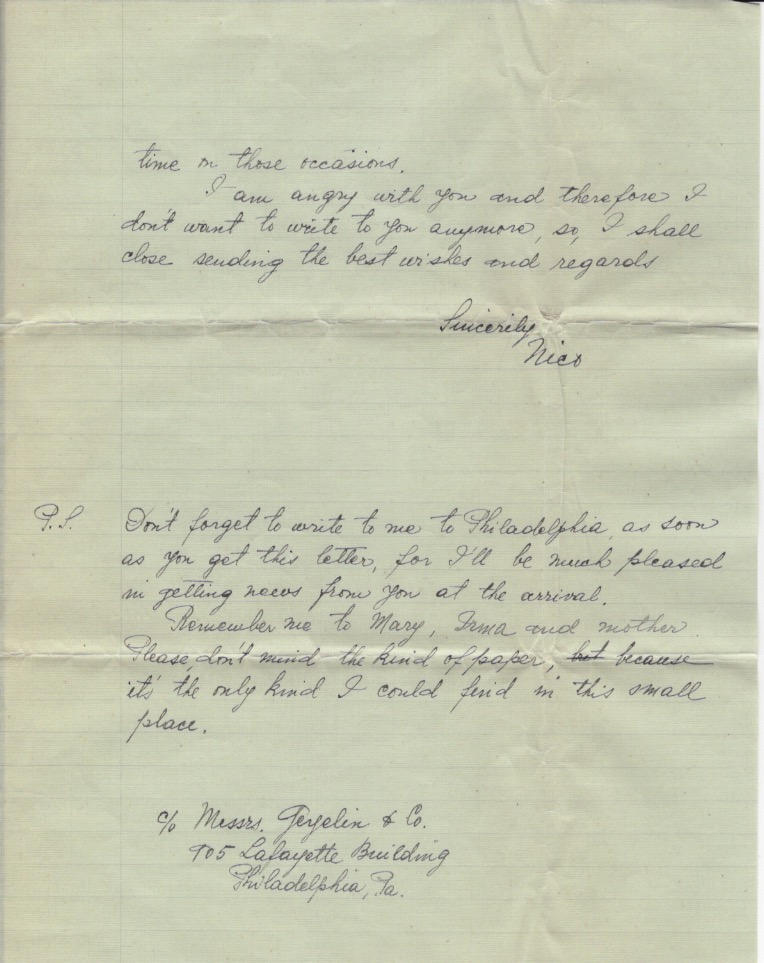 time on those occasions.
I am angry with you and therefore I
don't want to write to you anymore, so, I shall
close sending the best wishes and regards
Sincerily
Nico
P.S. Don't forget to write to me to Philadelphia, as soon
as you get this letter, for I'll be much pleased
in getting news from you at the arrival.
Remember me to Mary, Irma and mother
Please, don't mind the kind of paper, but because
it's the only kind I could find in this small
place.
c/o Messrs. Geyelin & Co.
905 Lafayette Building
Philadelphia, Pa.